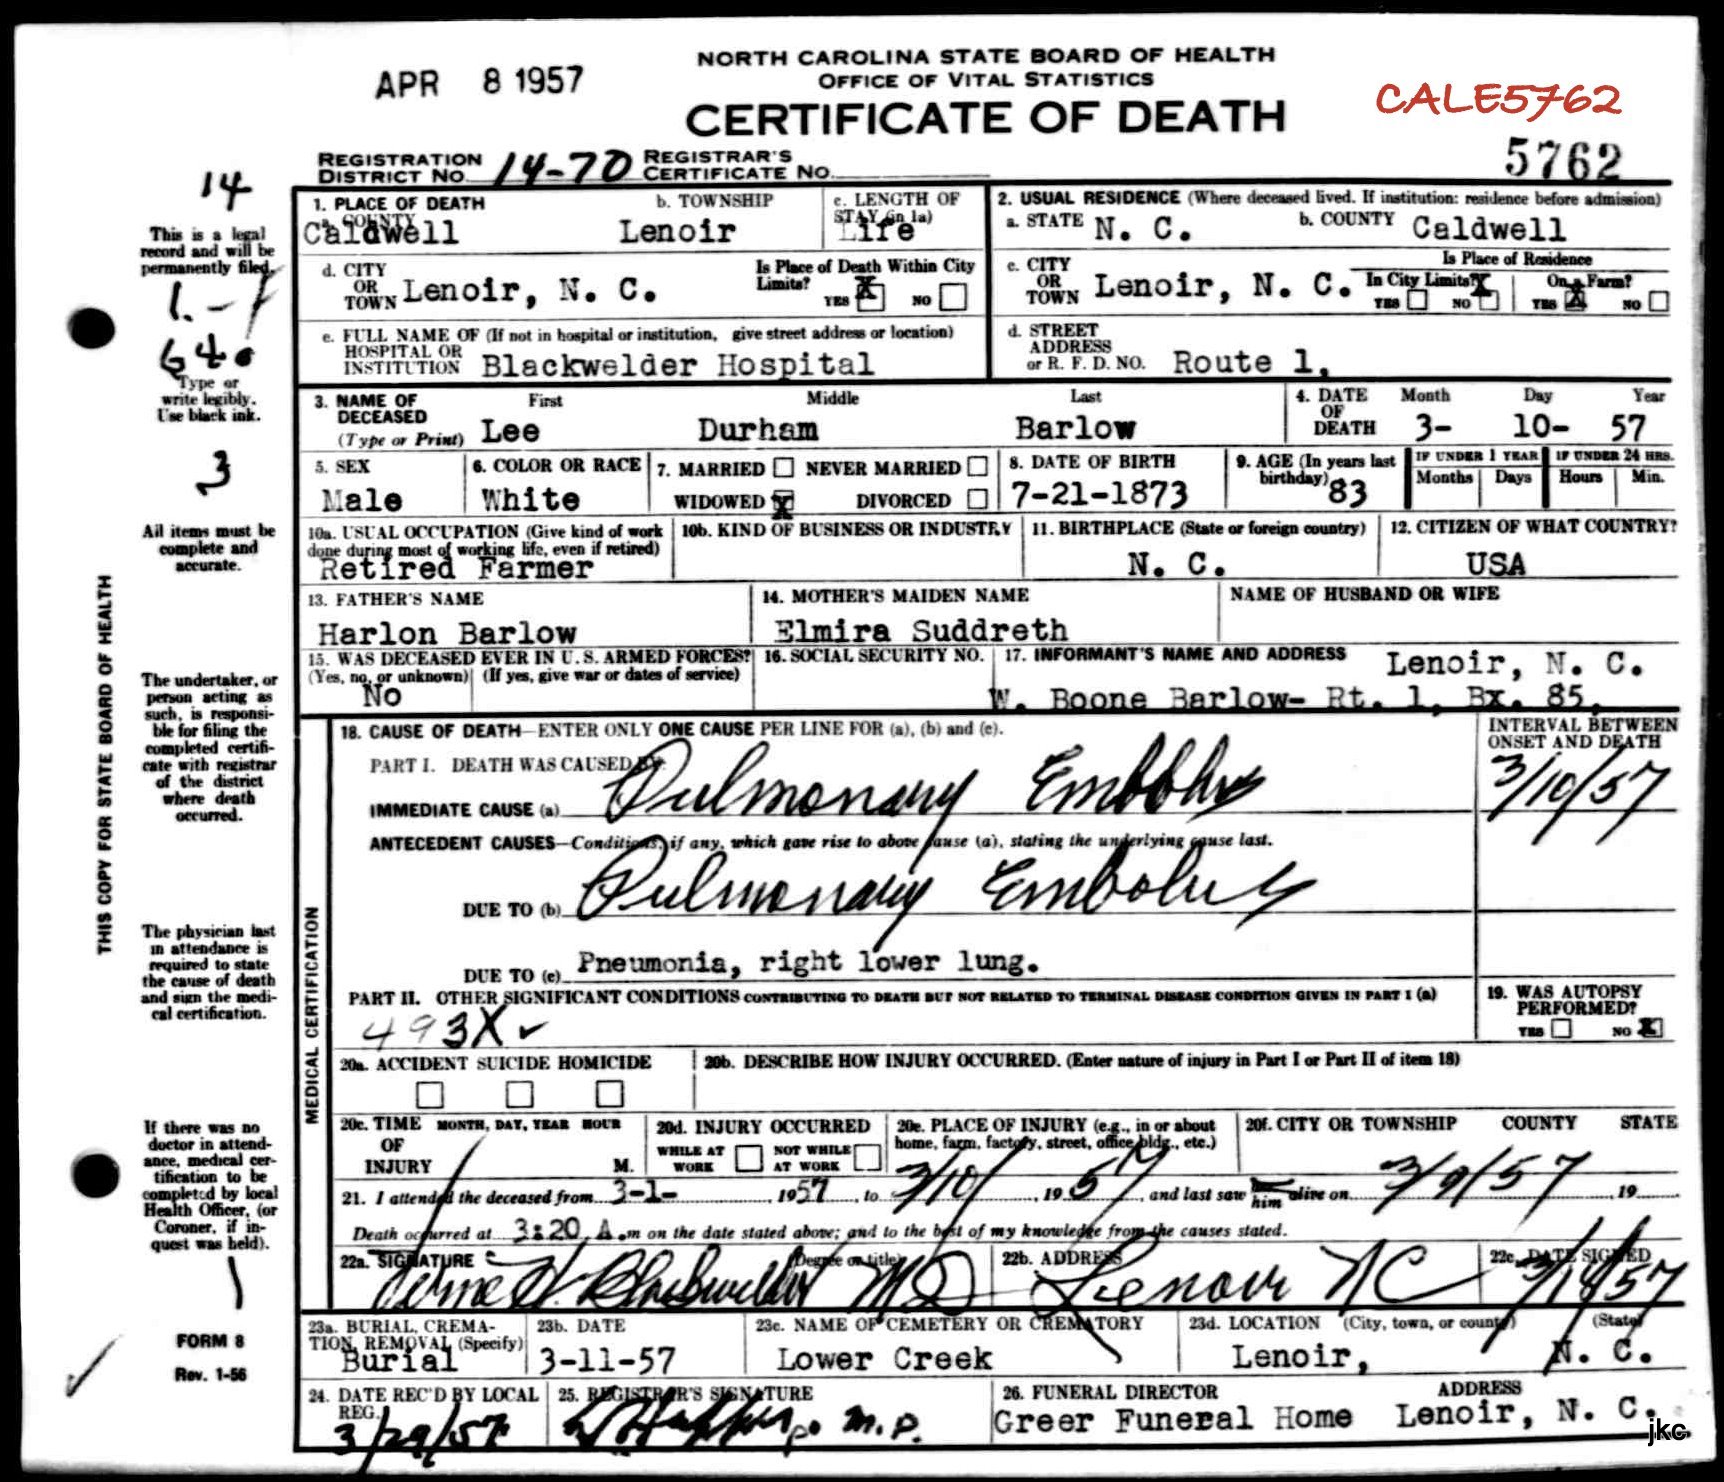 NORTH CAROLINA STATE BOARD OF HEALTH
OFFICE OF VITAL STATISTICS
APR 8 1957
CERTIFICATE OF DEATH
CALE5762
5762
REGISTRATION DISTRICT NO. 14-70 REGISTRAR'S CERTIFICATE NO.
14
This is a legal
record and will be
permanently filed.
1.-
640
Type or
write legibly.
Use black ink.
3
All items must be
complete and
accurate.
THIS COPY FOR STATE BOARD OF HEALTH
The undertaker, or
person acting as
such, is responsi-
ble for filing the
completed certifi-
cate with registrar
of the district
where death
occurred.
The physician last
in attendance is
required to state
the cause of death
and sign the medi-
cal certification.
If there was no
doctor in attend-
ance, medical cer-
tification to be
completed by local
Health Officer, (or
Coroner, if in-
quest was held).
1
FORM 8
Rev. 1-56
1. PLACE OF DEATH
a. COUNTY Caldwell b. TOWNSHIP Lenoir c. LENGTH OF STAY (in 1a) Life
d. CITY OR TOWN Lenoir, N. C. Is Place of Death Within City Limits? YES X NO
e. FULL NAME OF (If not in hospital or institution, give street address or location)
HOSPITAL OR INSTITUTION Blackwelder Hospital
2. USUAL RESIDENCE (Where deceased lived. If institution: residence before admission)
a. STATE N. C. b. COUNTY Caldwell
c. CITY OR TOWN Lenoir, N. C. Is Place of Residence In City Limits? YES NO X On a Farm? YES X NO
d. STREET ADDRESS or R. F. D. NO. Route 1,
3. NAME OF DECEASED (Type or Print) First Lee Middle Durham Last Barlow
4. DATE OF DEATH Month 3- Day 10- Year 57
5. SEX Male
6. COLOR OR RACE White
7. MARRIED NEVER MARRIED
WIDOWED X DIVORCED
8. DATE OF BIRTH 7-21-1873
9. AGE (In years last birthday) 83
IF UNDER 1 YEAR Months Days IF UNDER 24 HRS. Hours Min.
10a. USUAL OCCUPATION (Give kind of work done during most of working life, even if retired) Retired Farmer
10b. KIND OF BUSINESS OR INDUSTRY
11. BIRTHPLACE (State or foreign country) N. C.
12. CITIZEN OF WHAT COUNTRY? USA
13. FATHER'S NAME Harlon Barlow
14. MOTHER'S MAIDEN NAME Elmira Suddreth
NAME OF HUSBAND OR WIFE
15. WAS DECEASED EVER IN U. S. ARMED FORCES?
(Yes, no, or unknown) (If yes, give war or dates of service)
No
16. SOCIAL SECURITY NO.
17. INFORMANT'S NAME AND ADDRESS Lenoir, N. C.
W. Boone Barlow- Rt. 1, Bx. 85,
MEDICAL CERTIFICATION
18. CAUSE OF DEATH—ENTER ONLY ONE CAUSE PER LINE FOR (a), (b) and (c).
INTERVAL BETWEEN ONSET AND DEATH
PART I. DEATH WAS CAUSED BY:
IMMEDIATE CAUSE (a) Pulmonary Embolus 3/10/57
ANTECEDENT CAUSES—Conditions, if any, which gave rise to above cause (a), stating the underlying cause last.
DUE TO (b) Pulmonary Embolus
DUE TO (c) Pneumonia, right lower lung.
PART II. OTHER SIGNIFICANT CONDITIONS CONTRIBUTING TO DEATH BUT NOT RELATED TO TERMINAL DISEASE CONDITION GIVEN IN PART I (a)
493X
19. WAS AUTOPSY PERFORMED? YES NO X
20a. ACCIDENT SUICIDE HOMICIDE
20b. DESCRIBE HOW INJURY OCCURRED. (Enter nature of injury in Part I or Part II of item 18)
20c. TIME OF INJURY MONTH, DAY, YEAR HOUR M.
20d. INJURY OCCURRED WHILE AT WORK NOT WHILE AT WORK
20e. PLACE OF INJURY (e.g., in or about home, farm, factory, street, office bldg., etc.)
20f. CITY OR TOWNSHIP COUNTY STATE
21. I attended the deceased from 3-1- 1957, to 3/10/ 1957, and last saw him alive on 3/9/57 19
Death occurred at 3:20 A.m on the date stated above; and to the best of my knowledge from the causes stated.
22a. SIGNATURE (Degree or title) H. Blackwelder MD
22b. ADDRESS Lenoir NC
22c. DATE SIGNED 3/14/57
23a. BURIAL, CREMATION, REMOVAL (Specify) Burial
23b. DATE 3-11-57
23c. NAME OF CEMETERY OR CREMATORY Lower Creek
23d. LOCATION (City, town, or county) (State) Lenoir, N. C.
24. DATE REC'D BY LOCAL REG. 3/29/57
25. REGISTRAR'S SIGNATURE M.D.
26. FUNERAL DIRECTOR ADDRESS
Greer Funeral Home Lenoir, N. C.
jkc